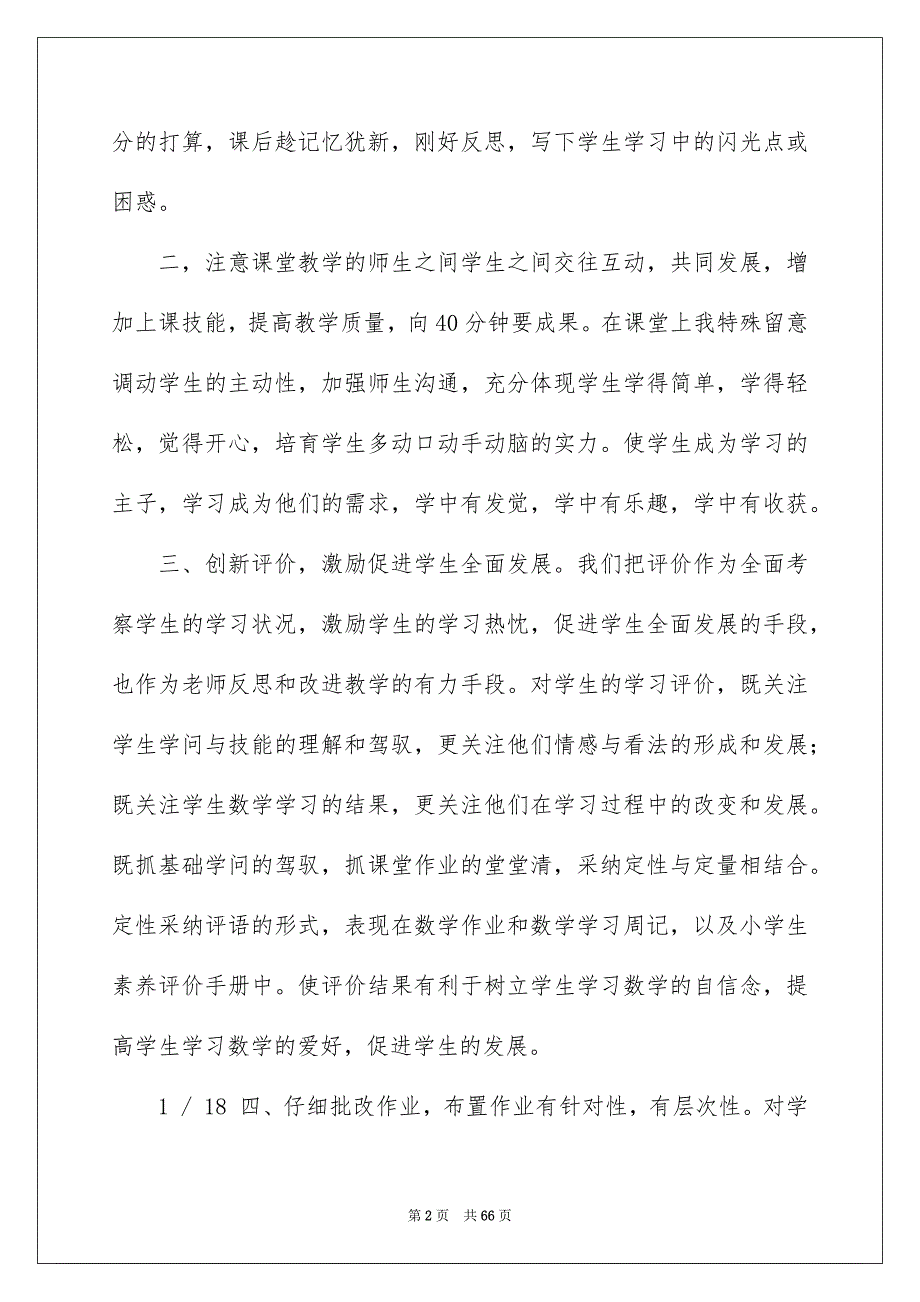 分的打算，课后趁记忆犹新，刚好反思，写下学生学习中的闪光点或
困惑。
二，注意课堂教学的师生之间学生之间交往互动，共同发展，增
加上课技能，提高教学质量，向40分钟要成果。在课堂上我特殊留意
调动学生的主动性，加强师生沟通，充分体现学生学得简单，学得轻
松，觉得开心，培育学生多动口动手动脑的实力。使学生成为学习的
主子，学习成为他们的需求，学中有发觉，学中有乐趣，学中有收获。
三、创新评价，激励促进学生全面发展。我们把评价作为全面考
察学生的学习状况，激励学生的学习热忱，促进学生全面发展的手段，
也作为老师反思和改进教学的有力手段。对学生的学习评价，既关注
学生学问与技能的理解和驾驭，更关注他们情感与看法的形成和发展；
既关注学生数学学习的结果，更关注他们在学习过程中的改变和发展。
既抓基础学问的驾驭，抓课堂作业的堂堂清，采纳定性与定量相结合。
定性采纳评语的形式，表现在数学作业和数学学习周记，以及小学生
素养评价手册中。使评价结果有利于树立学生学习数学的自信念，提
高学生学习数学的爱好，促进学生的发展。
1 / 18 四、仔细批改作业，布置作业有针对性，有层次性。对学
第2页 共66页